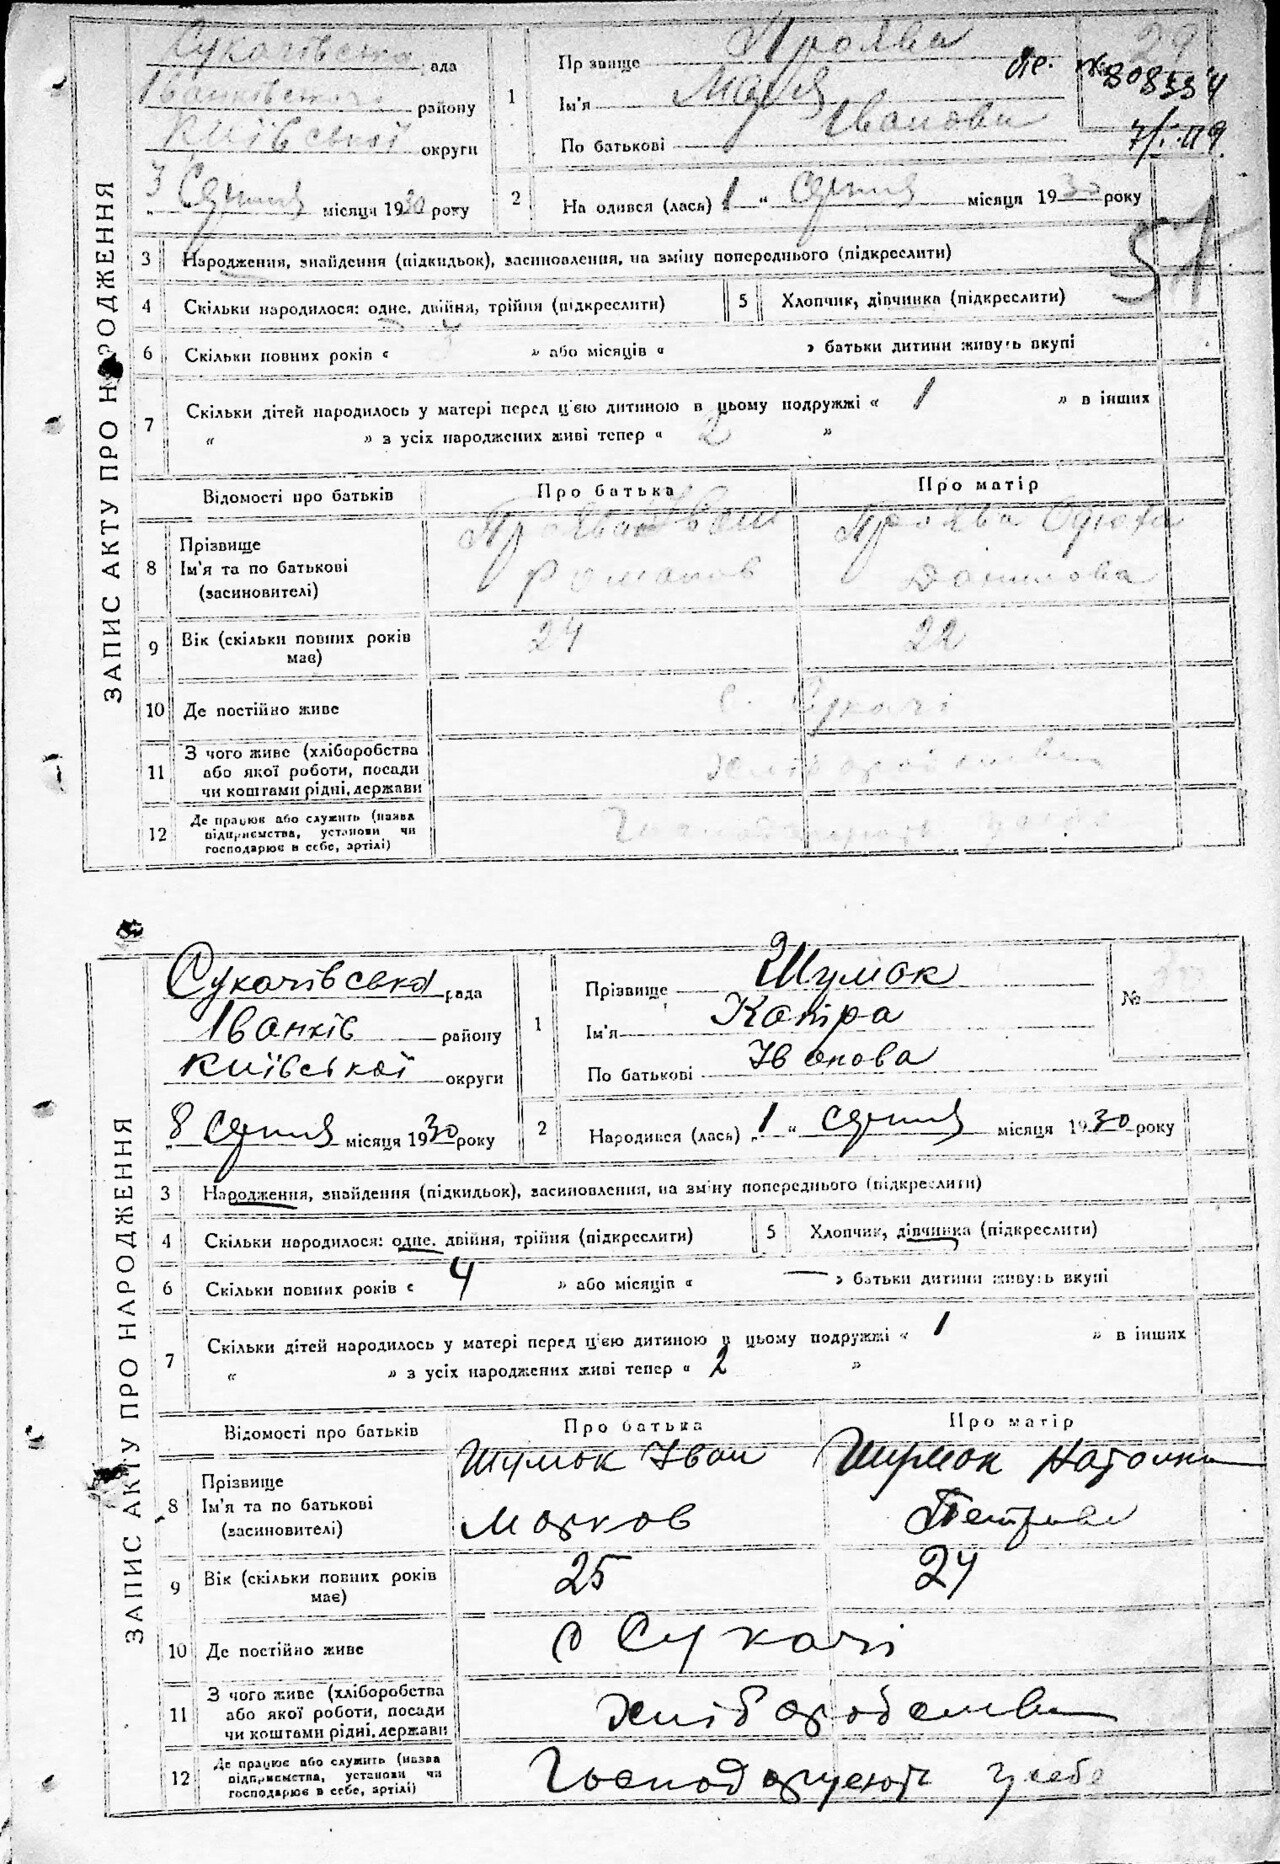 ЗАПИС АКТУ ПРО НАРОДЖЕННЯ
Сукачівська рада
Іванківського району
Київської округи
3 Серпня місяця 1930 року
1
Прізвище Проява
Ім'я Марія
По батькові Іванова
29
808334
2
На одився (лась) „1“ Серпня місяця 1930 року
51
3 Народження, знайдення (підкидьок), засиновлення, на зміну попереднього (підкреслити)
4 Скільки народилося: одне, двійня, трійня (підкреслити)
5 Хлопчик, дівчинка (підкреслити)
6 Скільки повних років « » або місяців « » батьки дитини живуть вкупі
7 Скільки дітей народилось у матері перед ц'єю дитиною в цьому подружжі « 1 » в інших
“ » з усіх народжених живі тепер « 2 »
Відомості про батьків Про батька Про матір
8 Прізвище Ім'я та по батькові (засиновителі)
Проява Іван Романов
Проява Данилова
9 Вік (скільки повних років має) 24 22
10 Де постійно живе с. Сукачі
11 З чого живе (хліборобства або якої роботи, посади чи коштами рідні, держави Хліборобства
12 Де працює або служить (назва підприємства, установи чи господарює в себе, артілі)
ЗАПИС АКТУ ПРО НАРОДЖЕННЯ
Сукачівська рада
Іванків району
Київської округи
8 Серпня місяця 1930 року
1
Прізвище Шумок
Ім'я Катра
По батькові Іванова
№ 30
2
Народився (лась) „1“ серпня місяця 1930 року
3 Народження, знайдення (підкидьок), засиновлення, на зміну попереднього (підкреслити)
4 Скільки народилося: одне, двійня, трійня (підкреслити)
5 Хлопчик, дівчинка (підкреслити)
6 Скільки повних років « 4 » або місяців « — » батьки дитини живуть вкупі
7 Скільки дітей народилось у матері перед ц'єю дитиною в цьому подружжі « 1 » в інших
“ » з усіх народжених живі тепер « 2 »
Відомості про батьків Про батька Про матір
8 Прізвище Ім'я та по батькові (засиновителі)
Шумок Іван Марков
Шумок Петрова
9 Вік (скільки повних років має) 25 24
10 Де постійно живе с Сукачі
11 З чого живе (хліборобства або якої роботи, посади чи коштами рідні, держави Хліборобства
12 Де працює або служить (назва підприємства, установи чи господарює в себе, артілі) Господарюють у себе